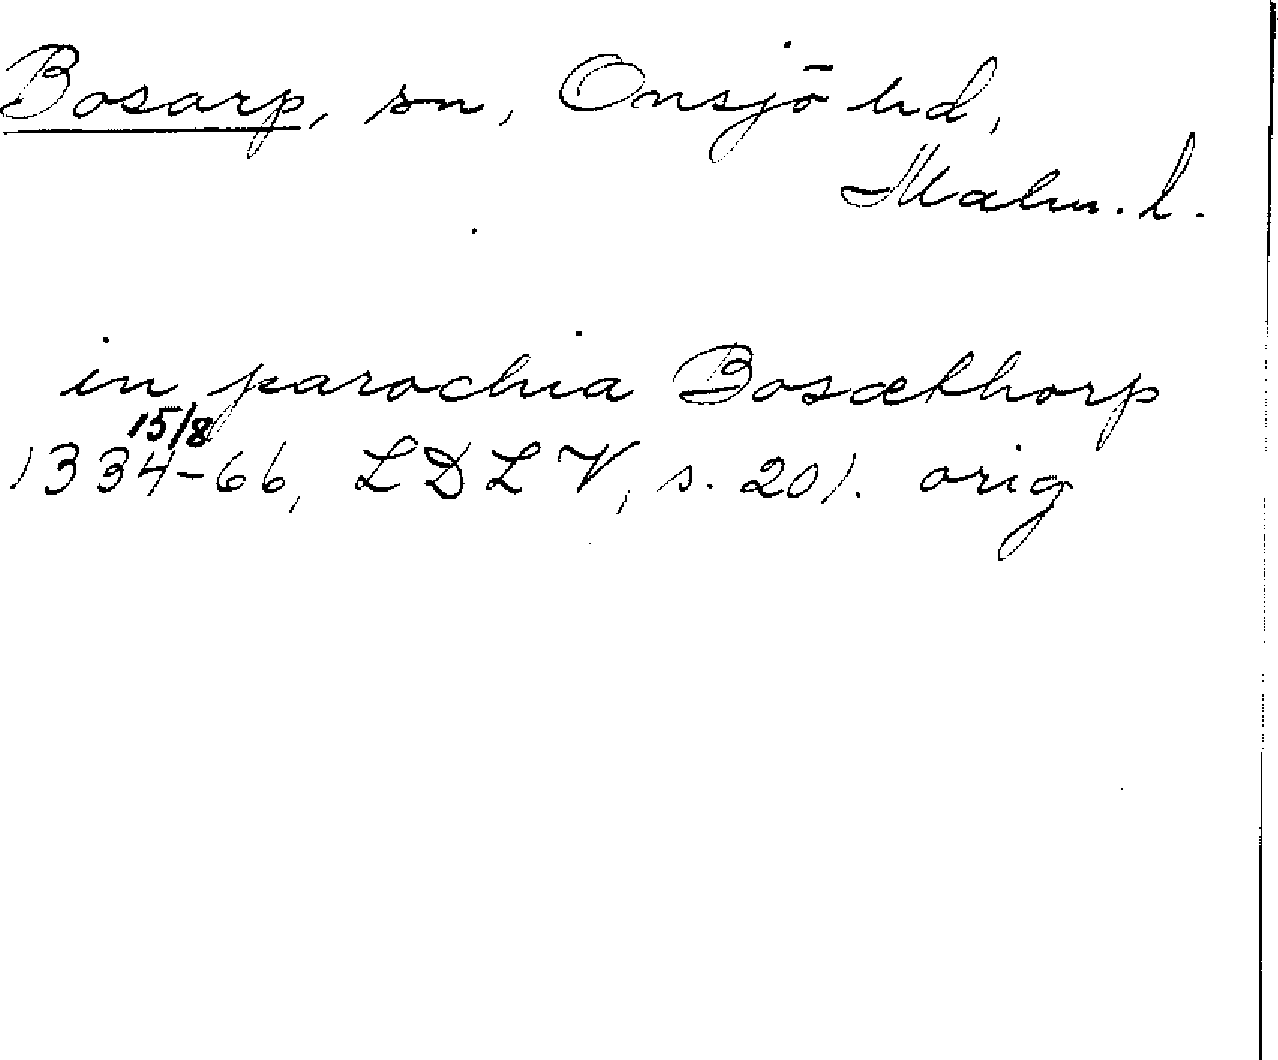 Bosarp, sn, Onsjö hd,
Malm. l.
in parochia Bosæthorp
15/8
1334-66, LDLV, s. 201. orig